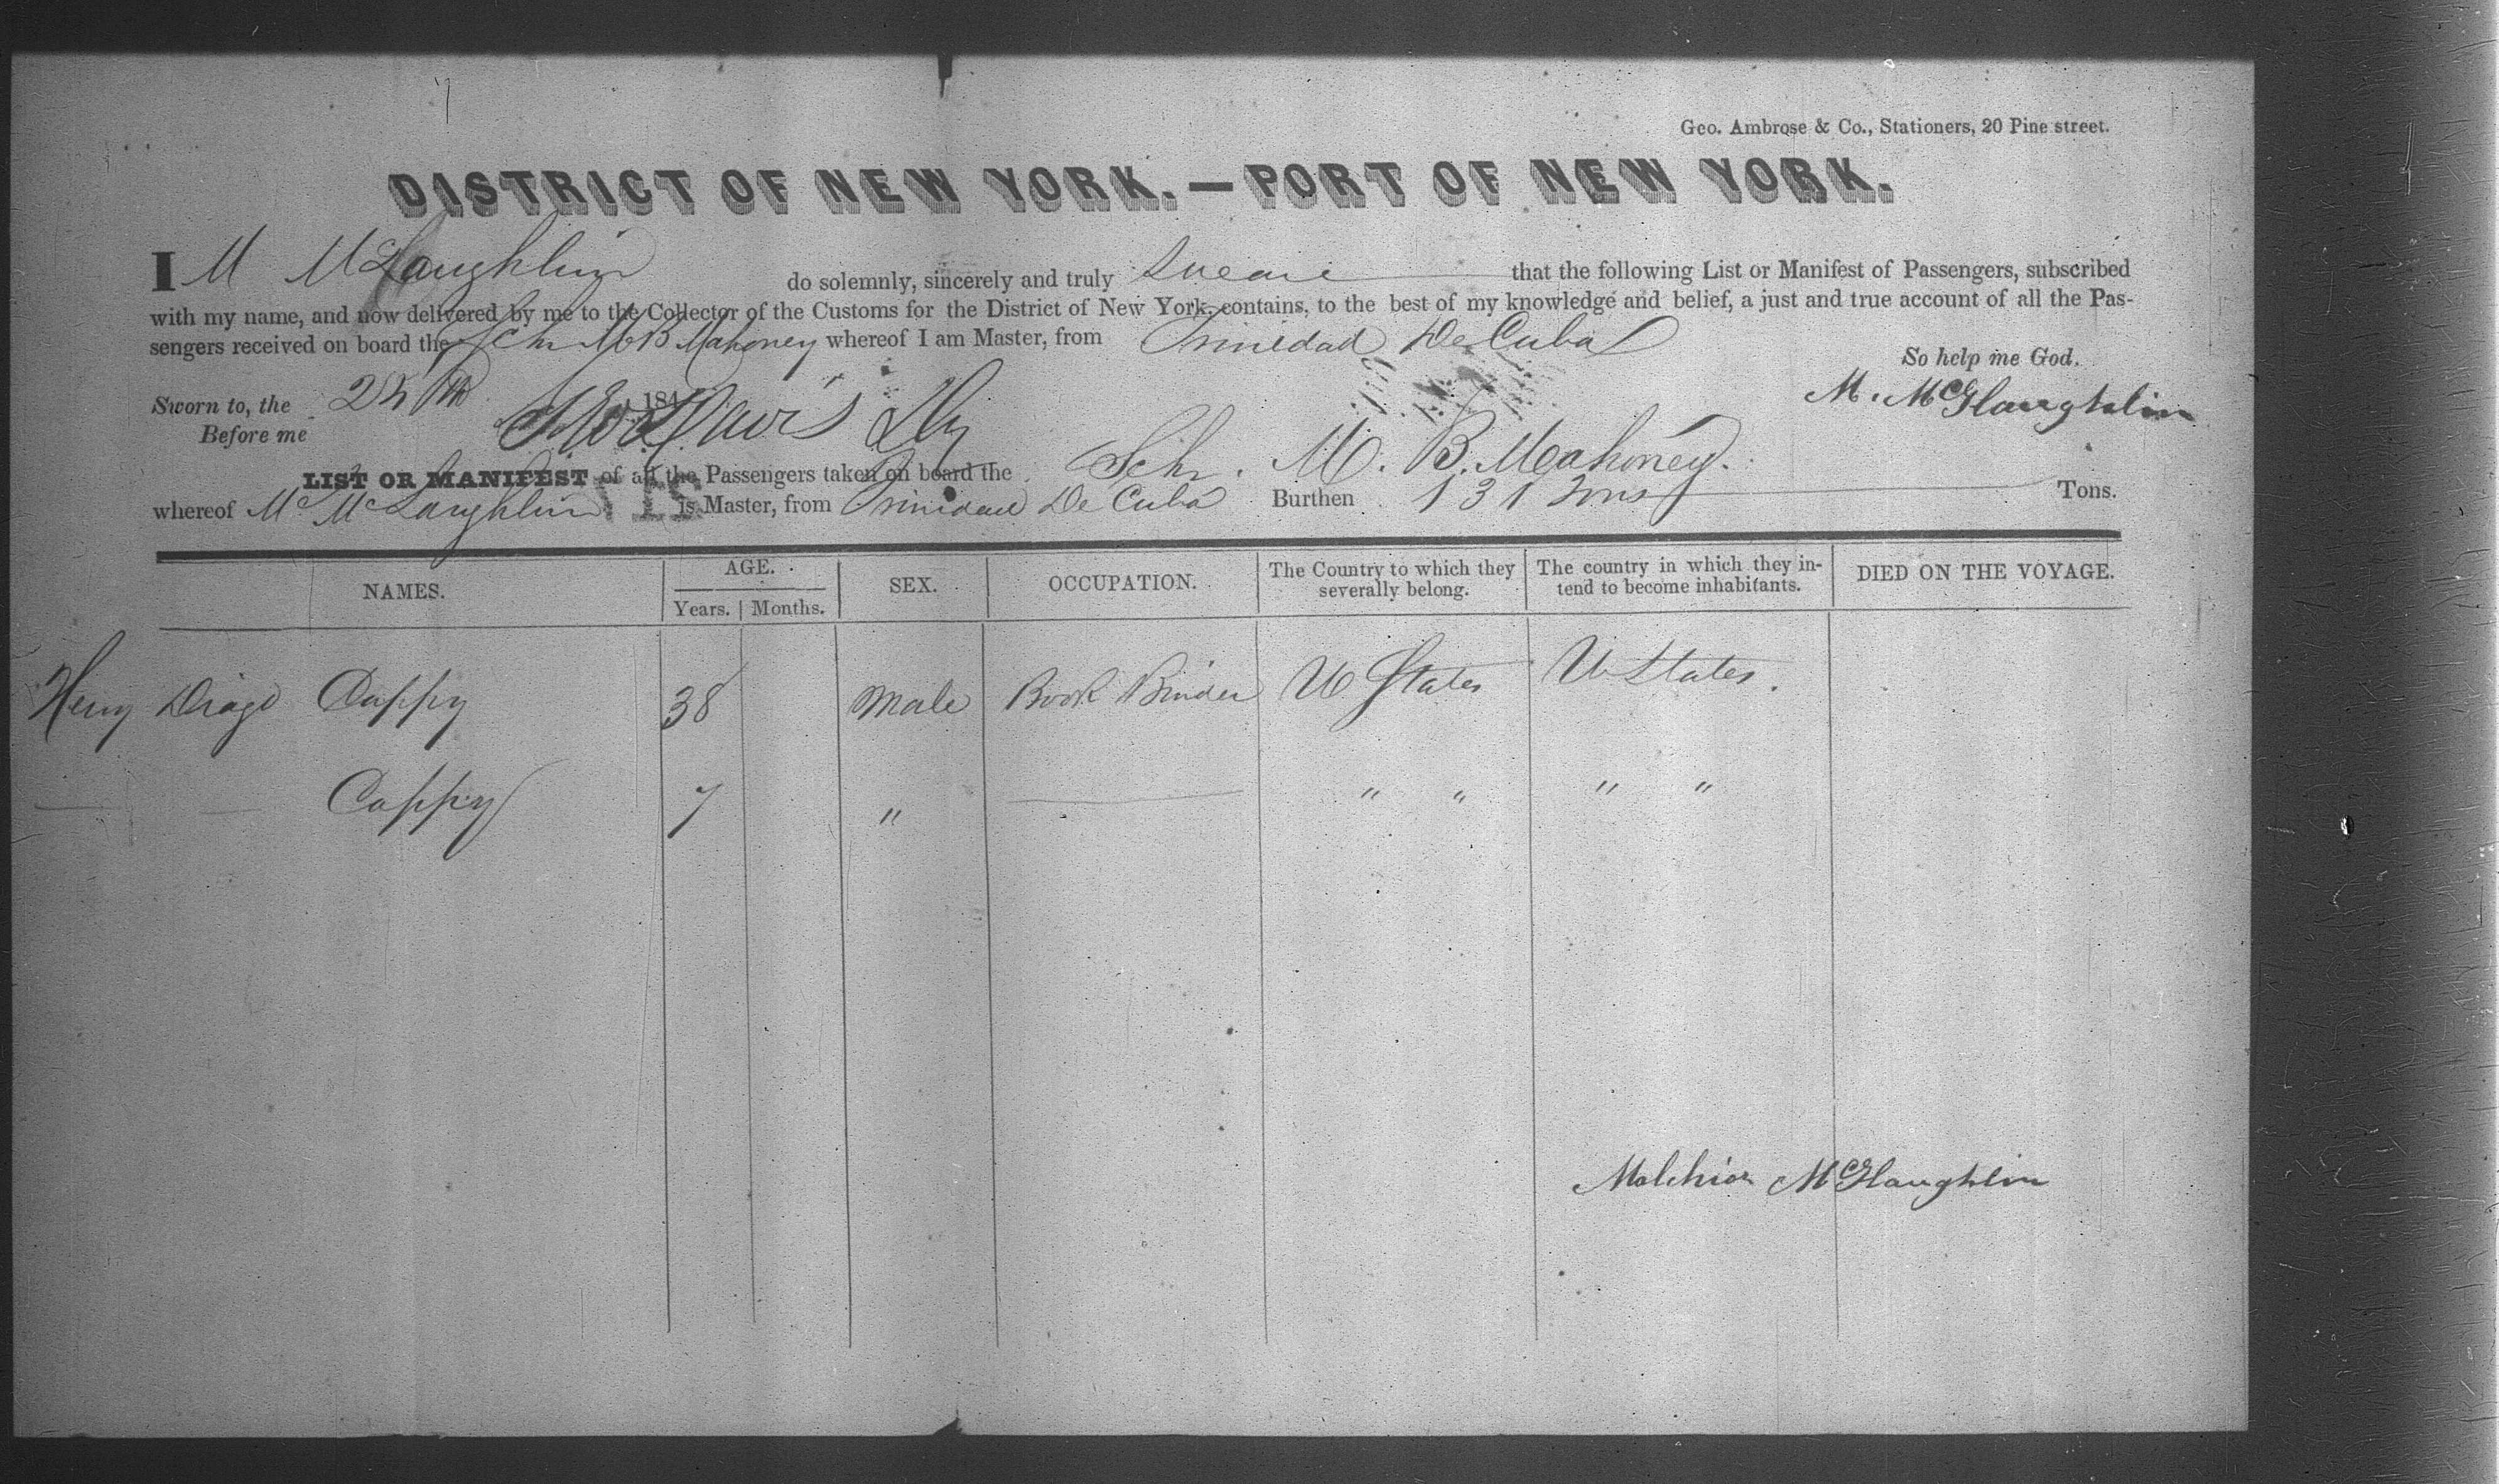 Geo. Ambrose & Co., Stationers, 20 Pine street.
DISTRICT OF NEW YORK.—PORT OF NEW YORK.
I M McLaughlin do solemnly, sincerely and truly swear that the following List or Manifest of Passengers, subscribed
with my name, and now delivered by me to the Collector of the Customs for the District of New York, contains, to the best of my knowledge and belief, a just and true account of all the Pas-
sengers received on board the Schr M B Mahoney whereof I am Master, from Trinidad De Cuba
So help me God.
Sworn to, the 184
M. McGlaughlin
Before me
LIST OR MANIFEST of all the Passengers taken on board the Schr. M. B. Mahoney.
whereof McLaughlin is Master, from Trinidad De Cuba Burthen 131 Tons Tons.
NAMES. AGE. SEX. OCCUPATION. The Country to which they severally belong. The country in which they in-tend to become inhabitants. DIED ON THE VOYAGE.
Years. Months.
Henry Diago Cappy 38 Male Book Binder U States U States.
Cappy 7 " " " " "
Melchior McGlaughlin